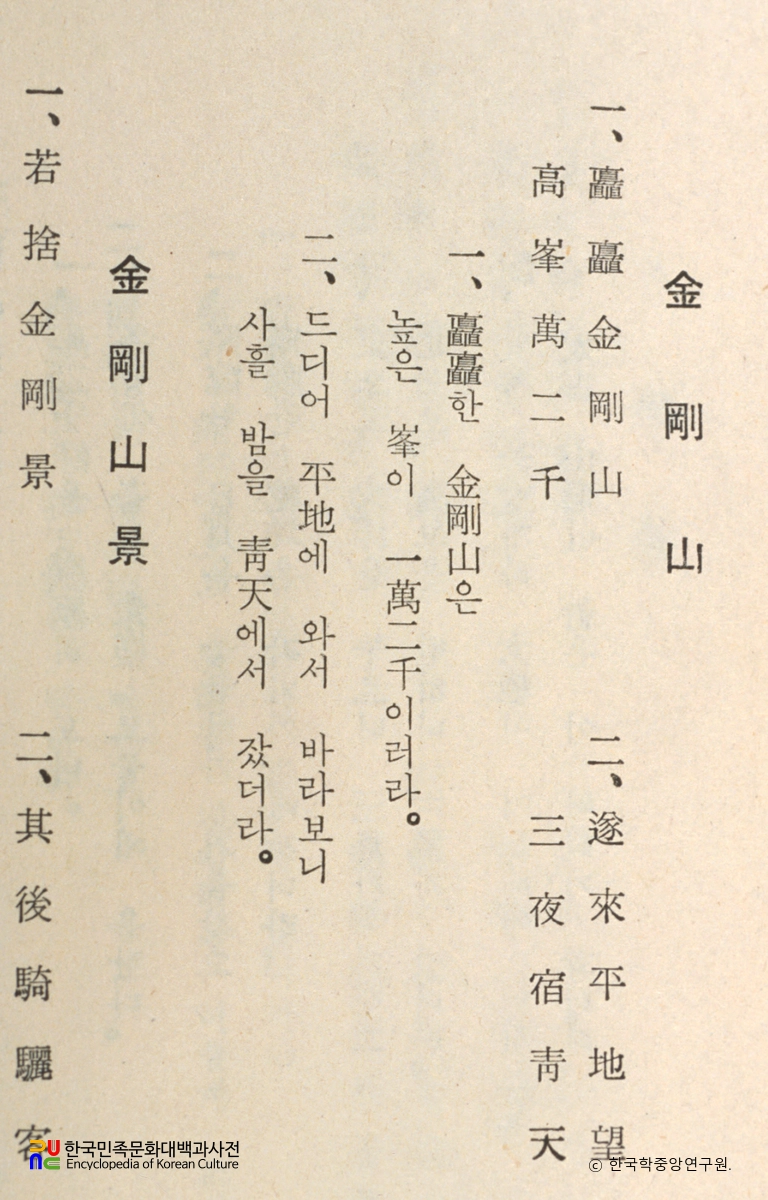 金剛山
一、矗矗金剛山
高峯萬二千
二、遂來平地望
三夜宿靑天
一、矗矗한 金剛山은
높은 峯이 一萬二千이러라。
二、드디어 平地에 와서 바라보니
사흘 밤을 靑天에서 잤더라。
金剛山景
一、若捨金剛景
二、其後騎驪客
한국민족문화대백과사전
Encyclopedia of Korean Culture
© 한국학중앙연구원.